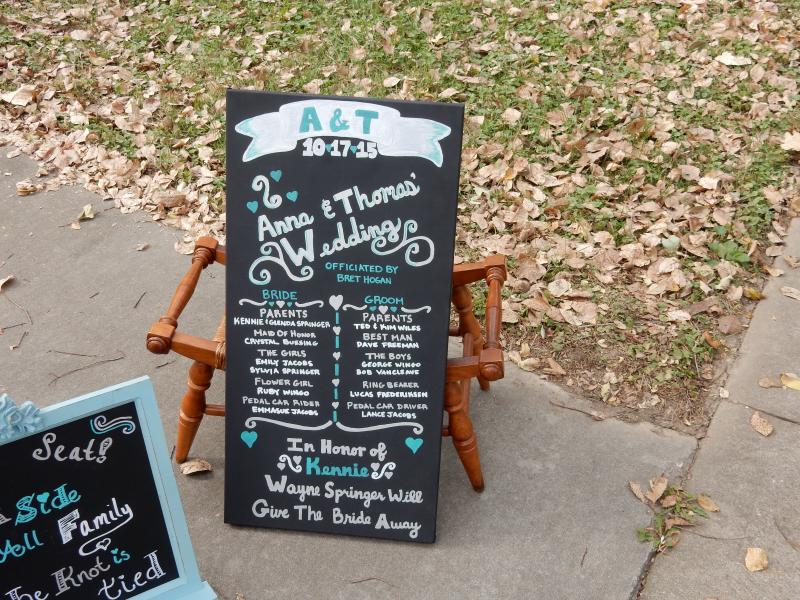 A & T
10•17•15
Anna & Thomas'
Wedding
OFFICIATED BY
BRET HOGAN
BRIDE
PARENTS
KENNIE & GLENDA SPRINGER
MAID OF HONOR
CRYSTAL BUESING
THE GIRLS
EMILY JACOBS
SYLVIA SPRINGER
FLOWER GIRL
RUBY WINGO
PEDAL CAR RIDER
EMMAGUE JACOBS
GROOM
PARENTS
TED & KIM WILES
BEST MAN
DAVE FREEMAN
THE BOYS
GEORGE WINGO
BOB VANCLEAVE
RING BEARER
LUCAS FREDERIKSEN
PEDAL CAR DRIVER
LANCE JACOBS
In Honor of
Kennie
Wayne Springer Will
Give The Bride Away
Seat!
Side
All Family
Knot is
tied